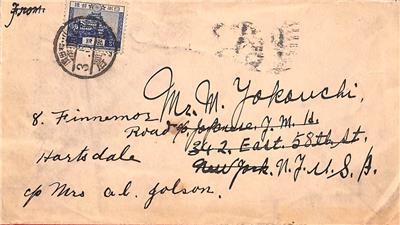 From:
Mr. M. Yokouchi,
8. Finnemor
Road c/o Japanese J. M. H.
Hartsdale
342. East. 58th st.
New York. N.Y. U. S. A.
c/o Mrs a.l. Golson.